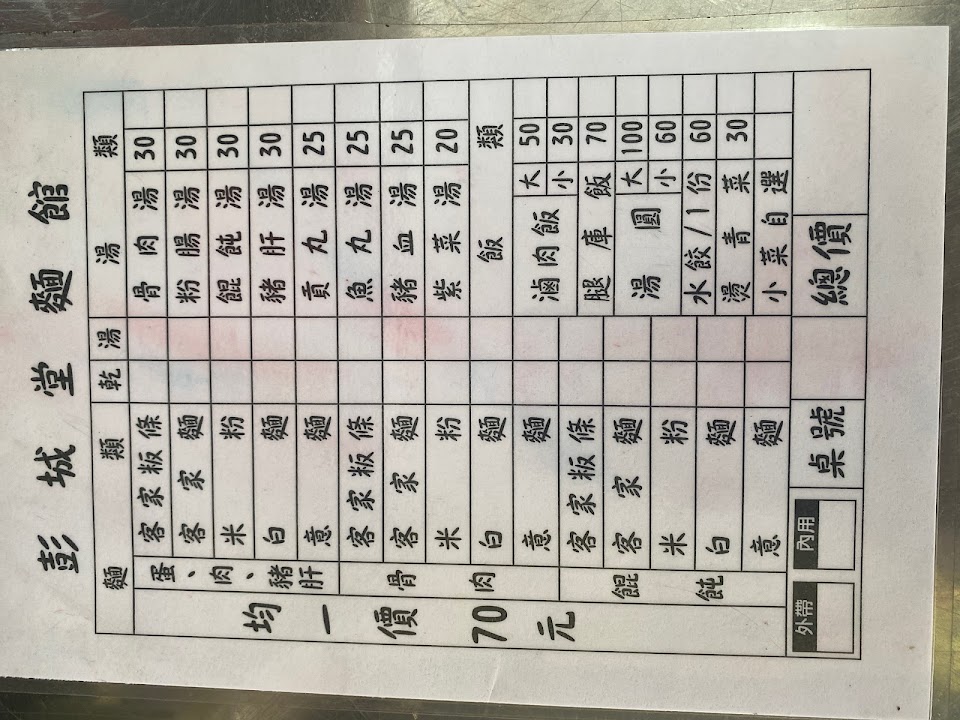 彭城堂麵館
麵類 乾 湯
均一價70元
蛋、肉、豬肝
客家粄條
客家麵
米粉
白麵
意麵
骨肉
客家粄條
客家麵
米粉
白麵
意麵
餛飩
客家粄條
客家麵
米粉
白麵
意麵
湯類
骨肉湯 30
粉腸湯 30
餛飩湯 30
豬肝湯 30
貢丸湯 25
魚丸湯 25
豬血湯 25
紫菜湯 20
飯類
滷肉飯 大 50
小 30
腿庫飯 70
湯圓 大 100
小 60
水餃/1份 60
燙青菜 30
小菜自選
外帶 內用 桌號 總價